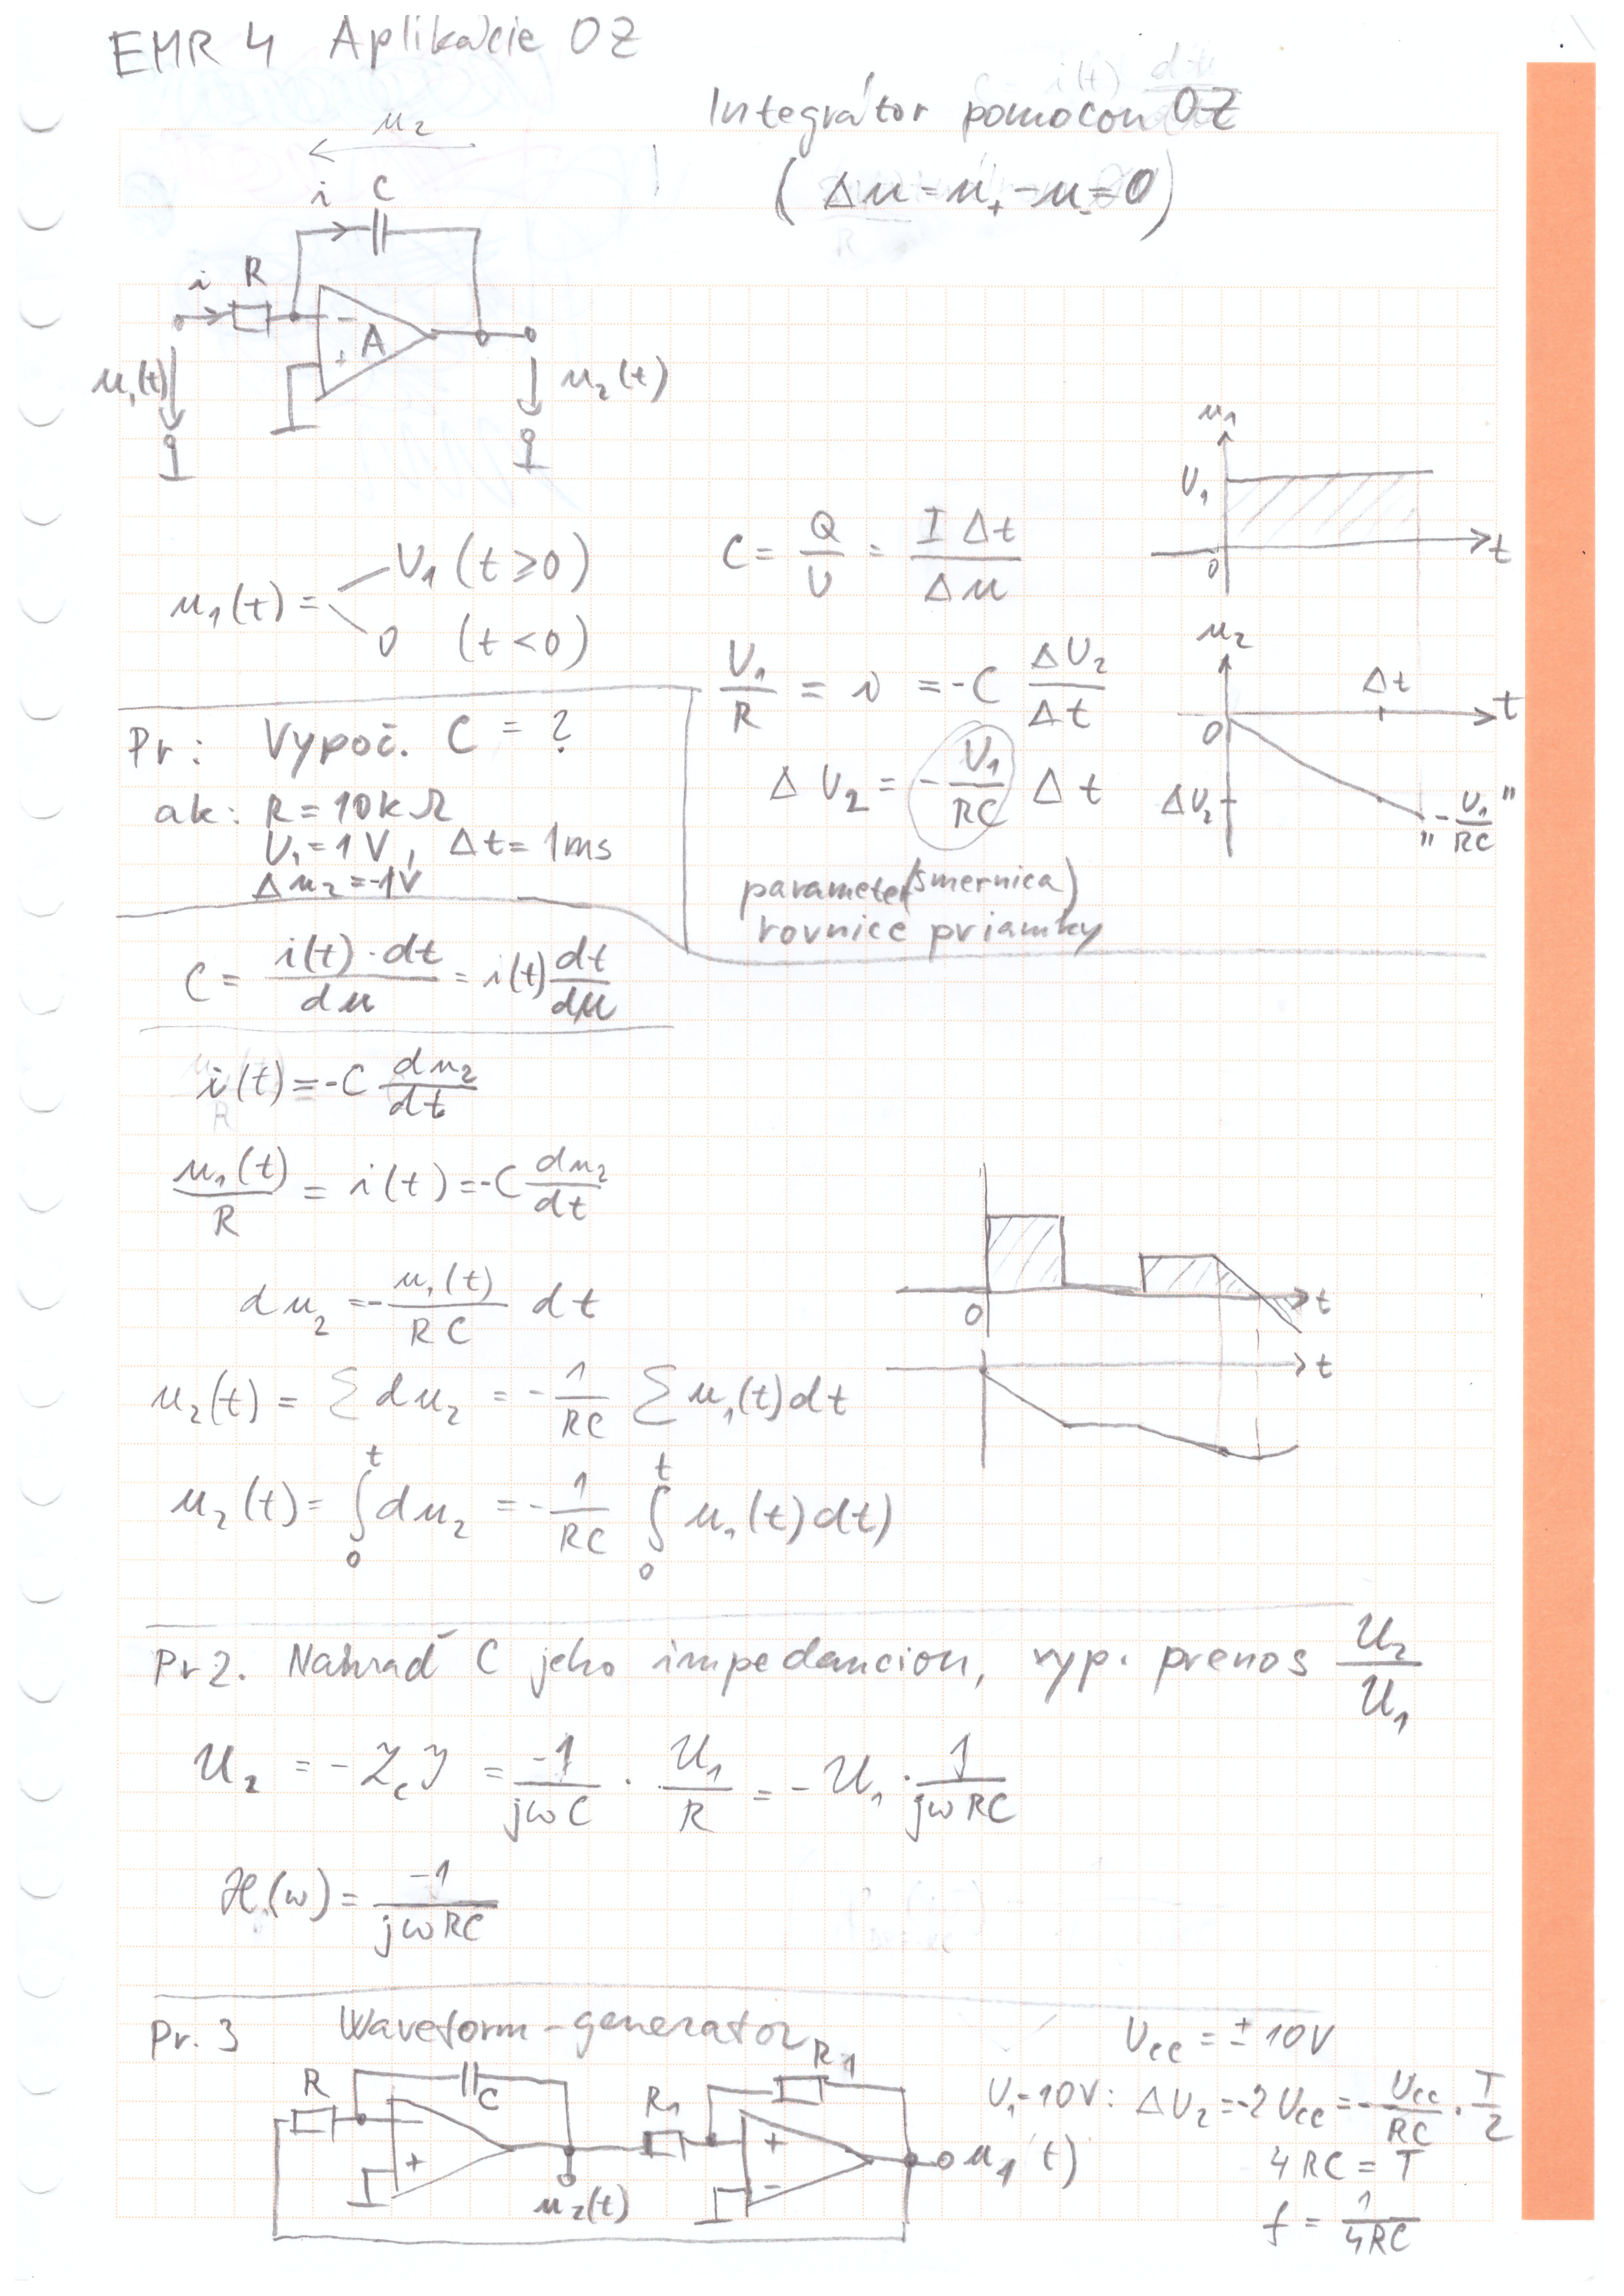 EMR 4 Aplikácie OZ
Integrátor pomocou OZ
(Δu = u₊ - u₋ = 0)
u₂
i C
i R
- A +
u₁(t)
u₂(t)
u₁
U₁
0
t
u₁(t) = U₁ (t ≥ 0)
0 (t < 0)
C = Q/U = I Δt/Δu
U₁/R = i = -C ΔU₂/Δt
ΔU₂ = -U₁/RC Δt
parameter (smernica)
rovnice priamky
u₂
Δt
t
0
ΔU₂
"-U₁/RC"
Pr: Vypoč. C = ?
ak: R = 10kΩ
U₁ = 1V, Δt = 1ms
Δu₂ = -1V
C = i(t)·dt/du = i(t) dt/du
i(t) = -C du₂/dt
u₁(t)/R = i(t) = -C du₂/dt
du₂ = -u₁(t)/RC dt
0
t
t
u₂(t) = Σ du₂ = -1/RC Σ u₁(t)dt
u₂(t) = ∫₀ᵗ du₂ = -1/RC ∫₀ᵗ u₁(t)dt)
Pr 2. Nahraď C jeho impedanciou, vyp. prenos U₂/U₁
U₂ = -Z_c I = -1/jωC · U₁/R = -U₁ · 1/jωRC
H(ω) = -1/jωRC
Pr. 3 Waveform-generator
R C R₁ R1
+ + -
u₂(t)
u₁ t)
Ucc = ± 10V
U₁=10V: ΔU₂ = -2Ucc = -Ucc/RC · T/2
4RC = T
f = 1/4RC